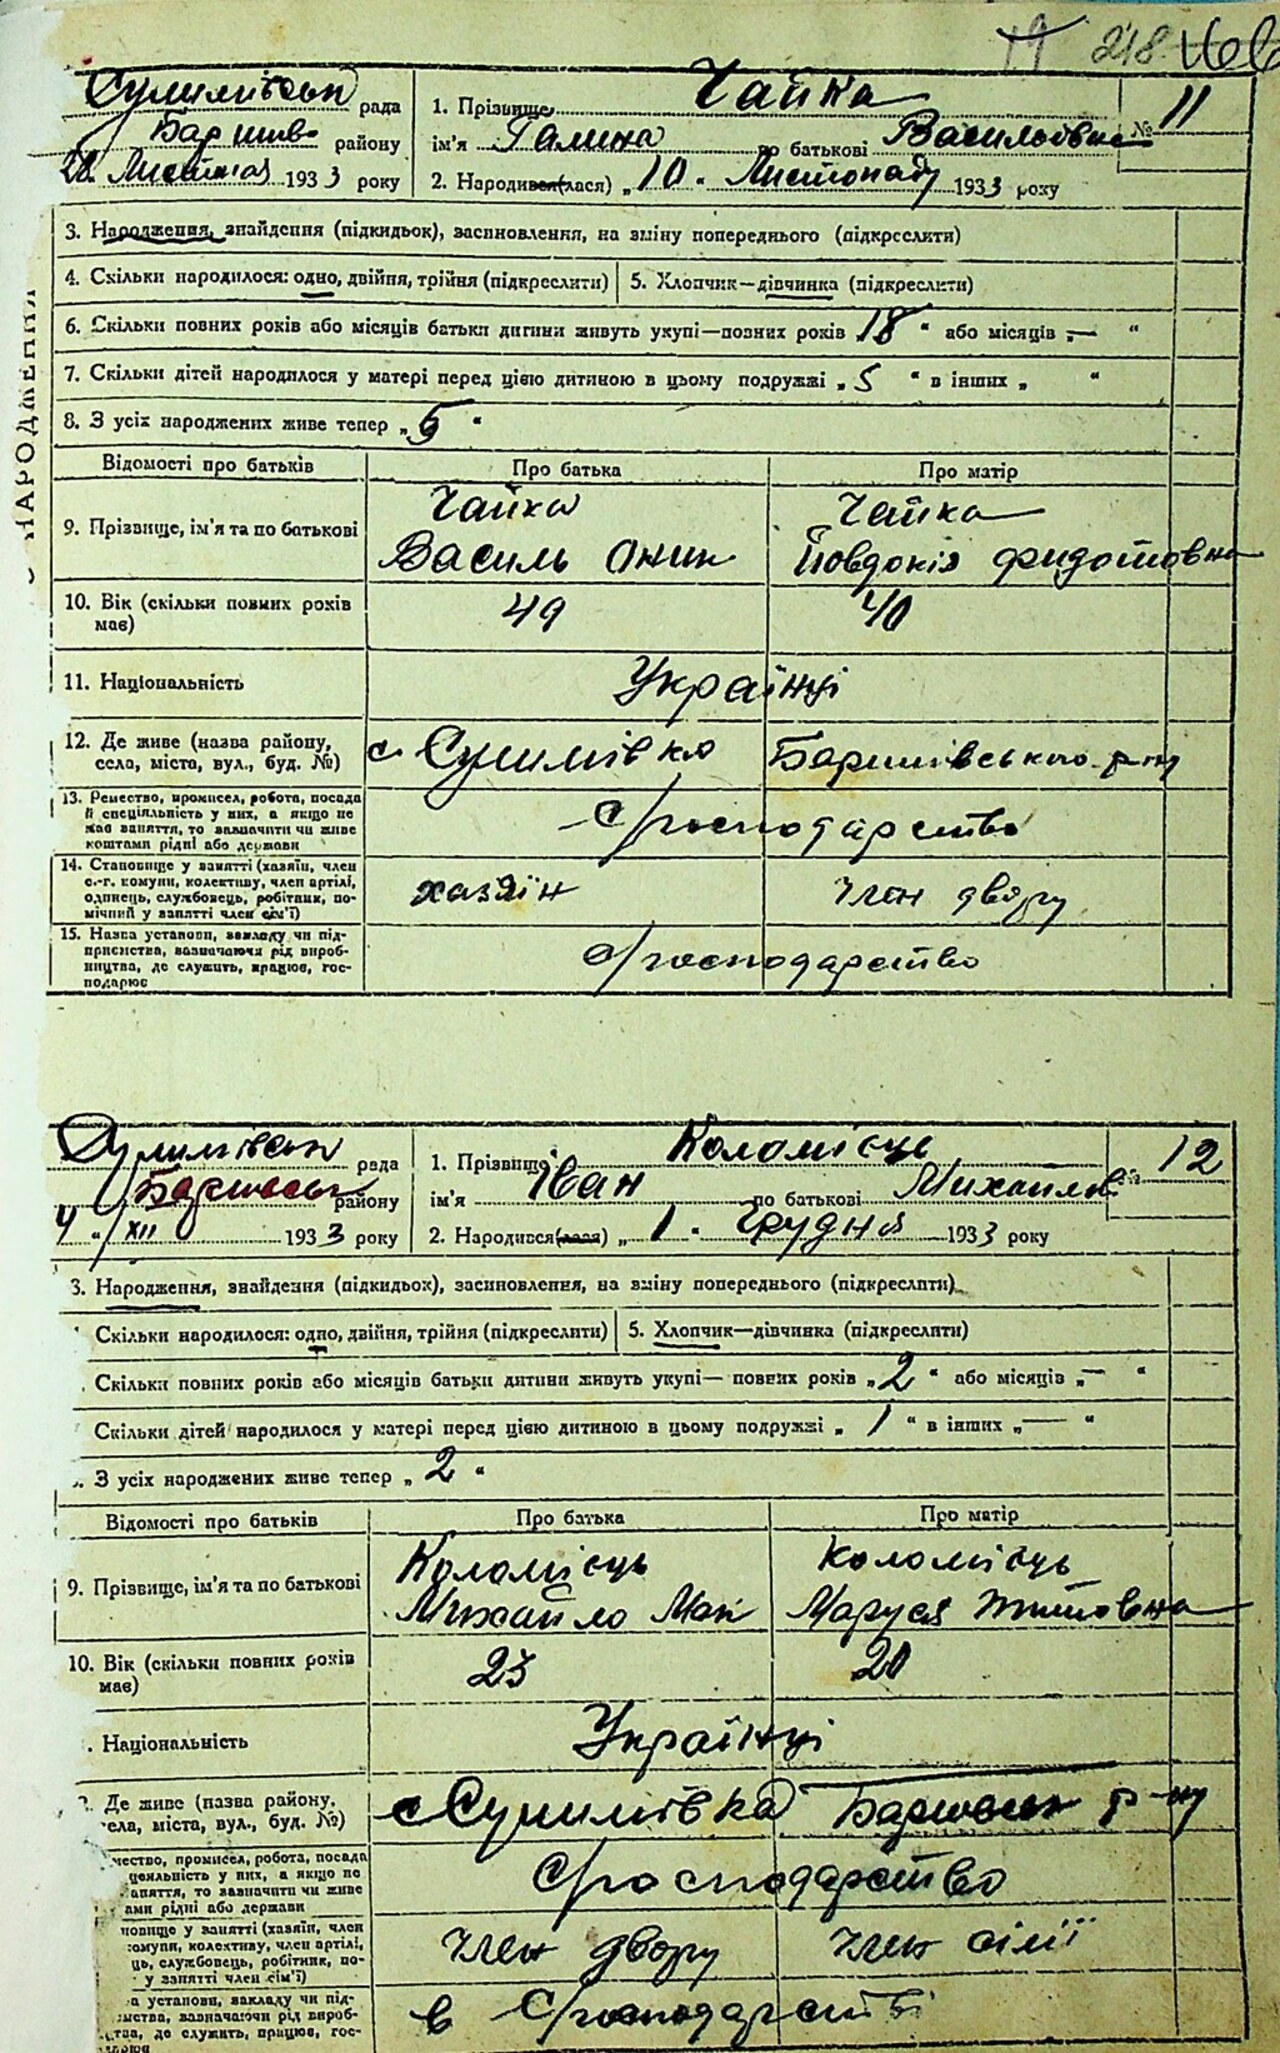 19 218
Сулимівськ рада
Баришів району
28. Листопад 1933 року
1. Прізвище Чайка
ім'я Галина по батькові Васильовна
№ 11
2. Народився(лася) „ 10 " Листопаду 1933 року
3. Народження, знайдення (підкидьок), засиновлення, на зміну попереднього (підкреслити)
4. Скільки народилося: одно, двійня, трійня (підкреслити) 5. Хлопчик—дівчинка (підкреслити)
6. Скільки повних років або місяців батьки дитини живуть укупі—повних років 18 " або місяців „— "
7. Скільки дітей народилося у матері перед цією дитиною в цьому подружжі „ 5 " в інших „ "
8. З усіх народжених живе тепер „ 5 "
Відомості про батьків Про батька Про матір
9. Прізвище, ім'я та по батькові
Чайка Чайка
Василь Оник Йовдокія Фидотовна
10. Вік (скільки повних років має) 49 40
11. Національність Українці
12. Де живе (назва району, села, міста, вул., буд. №) с Сулимівка Баришівського р-ну
13. Ремество, промисел, робота, посада
й спеціяльність у них, а якщо не
має заняття, то зазначити чи живе
коштами рідні або держави
С/господарство
14. Становище у занятті (хазяїн, член
с.-г. комуни, колективу, член артілі,
одинець, службовець, робітник, по-
мічний у занятті член сім'ї)
хазяїн Член двору
15. Назва установи, закладу чи під-
приємства, зазначаючи рід вироб-
ництва, де служить, працює, гос-
подарює
С/господарство
НАРОДЖЕННЯ
Сулимівськ рада
Баришівськ району
4 " XII 1933 року
1. Прізвище Коломієць
ім'я Іван по батькові Михайлов
№ 12
2. Народився(лася) „ 1 " Грудня 1933 року
3. Народження, знайдення (підкидьок), засиновлення, на зміну попереднього (підкреслити)
Скільки народилося: одно, двійня, трійня (підкреслити) 5. Хлопчик—дівчинка (підкреслити)
Скільки повних років або місяців батьки дитини живуть укупі— повних років „ 2 " або місяців „— "
Скільки дітей народилося у матері перед цією дитиною в цьому подружжі „ 1 " в інших „— "
З усіх народжених живе тепер „ 2 "
Відомості про батьків Про батька Про матір
9. Прізвище, ім'я та по батькові
Коломієць Коломієць
Михайло Мак Маруся Титовна
10. Вік (скільки повних років має) 23 20
. Національність Українці
Де живе (назва району, села, міста, вул., буд. №) с Сулимівка Баришівськ р-ну
ество, промисел, робота, посада
ціяльність у них, а якщо не
аняття, то зазначити чи живе
ами рідні або держави
С/господарство
новище у занятті (хазяїн, член
омуни, колективу, член артілі,
ць, службовець, робітник, по-
у занятті член сім'ї)
Член двору Член сімї
а установи, закладу чи під-
мства, зазначаючи рід вироб-
тва, де служить, працює, гос-
в С/господарстві